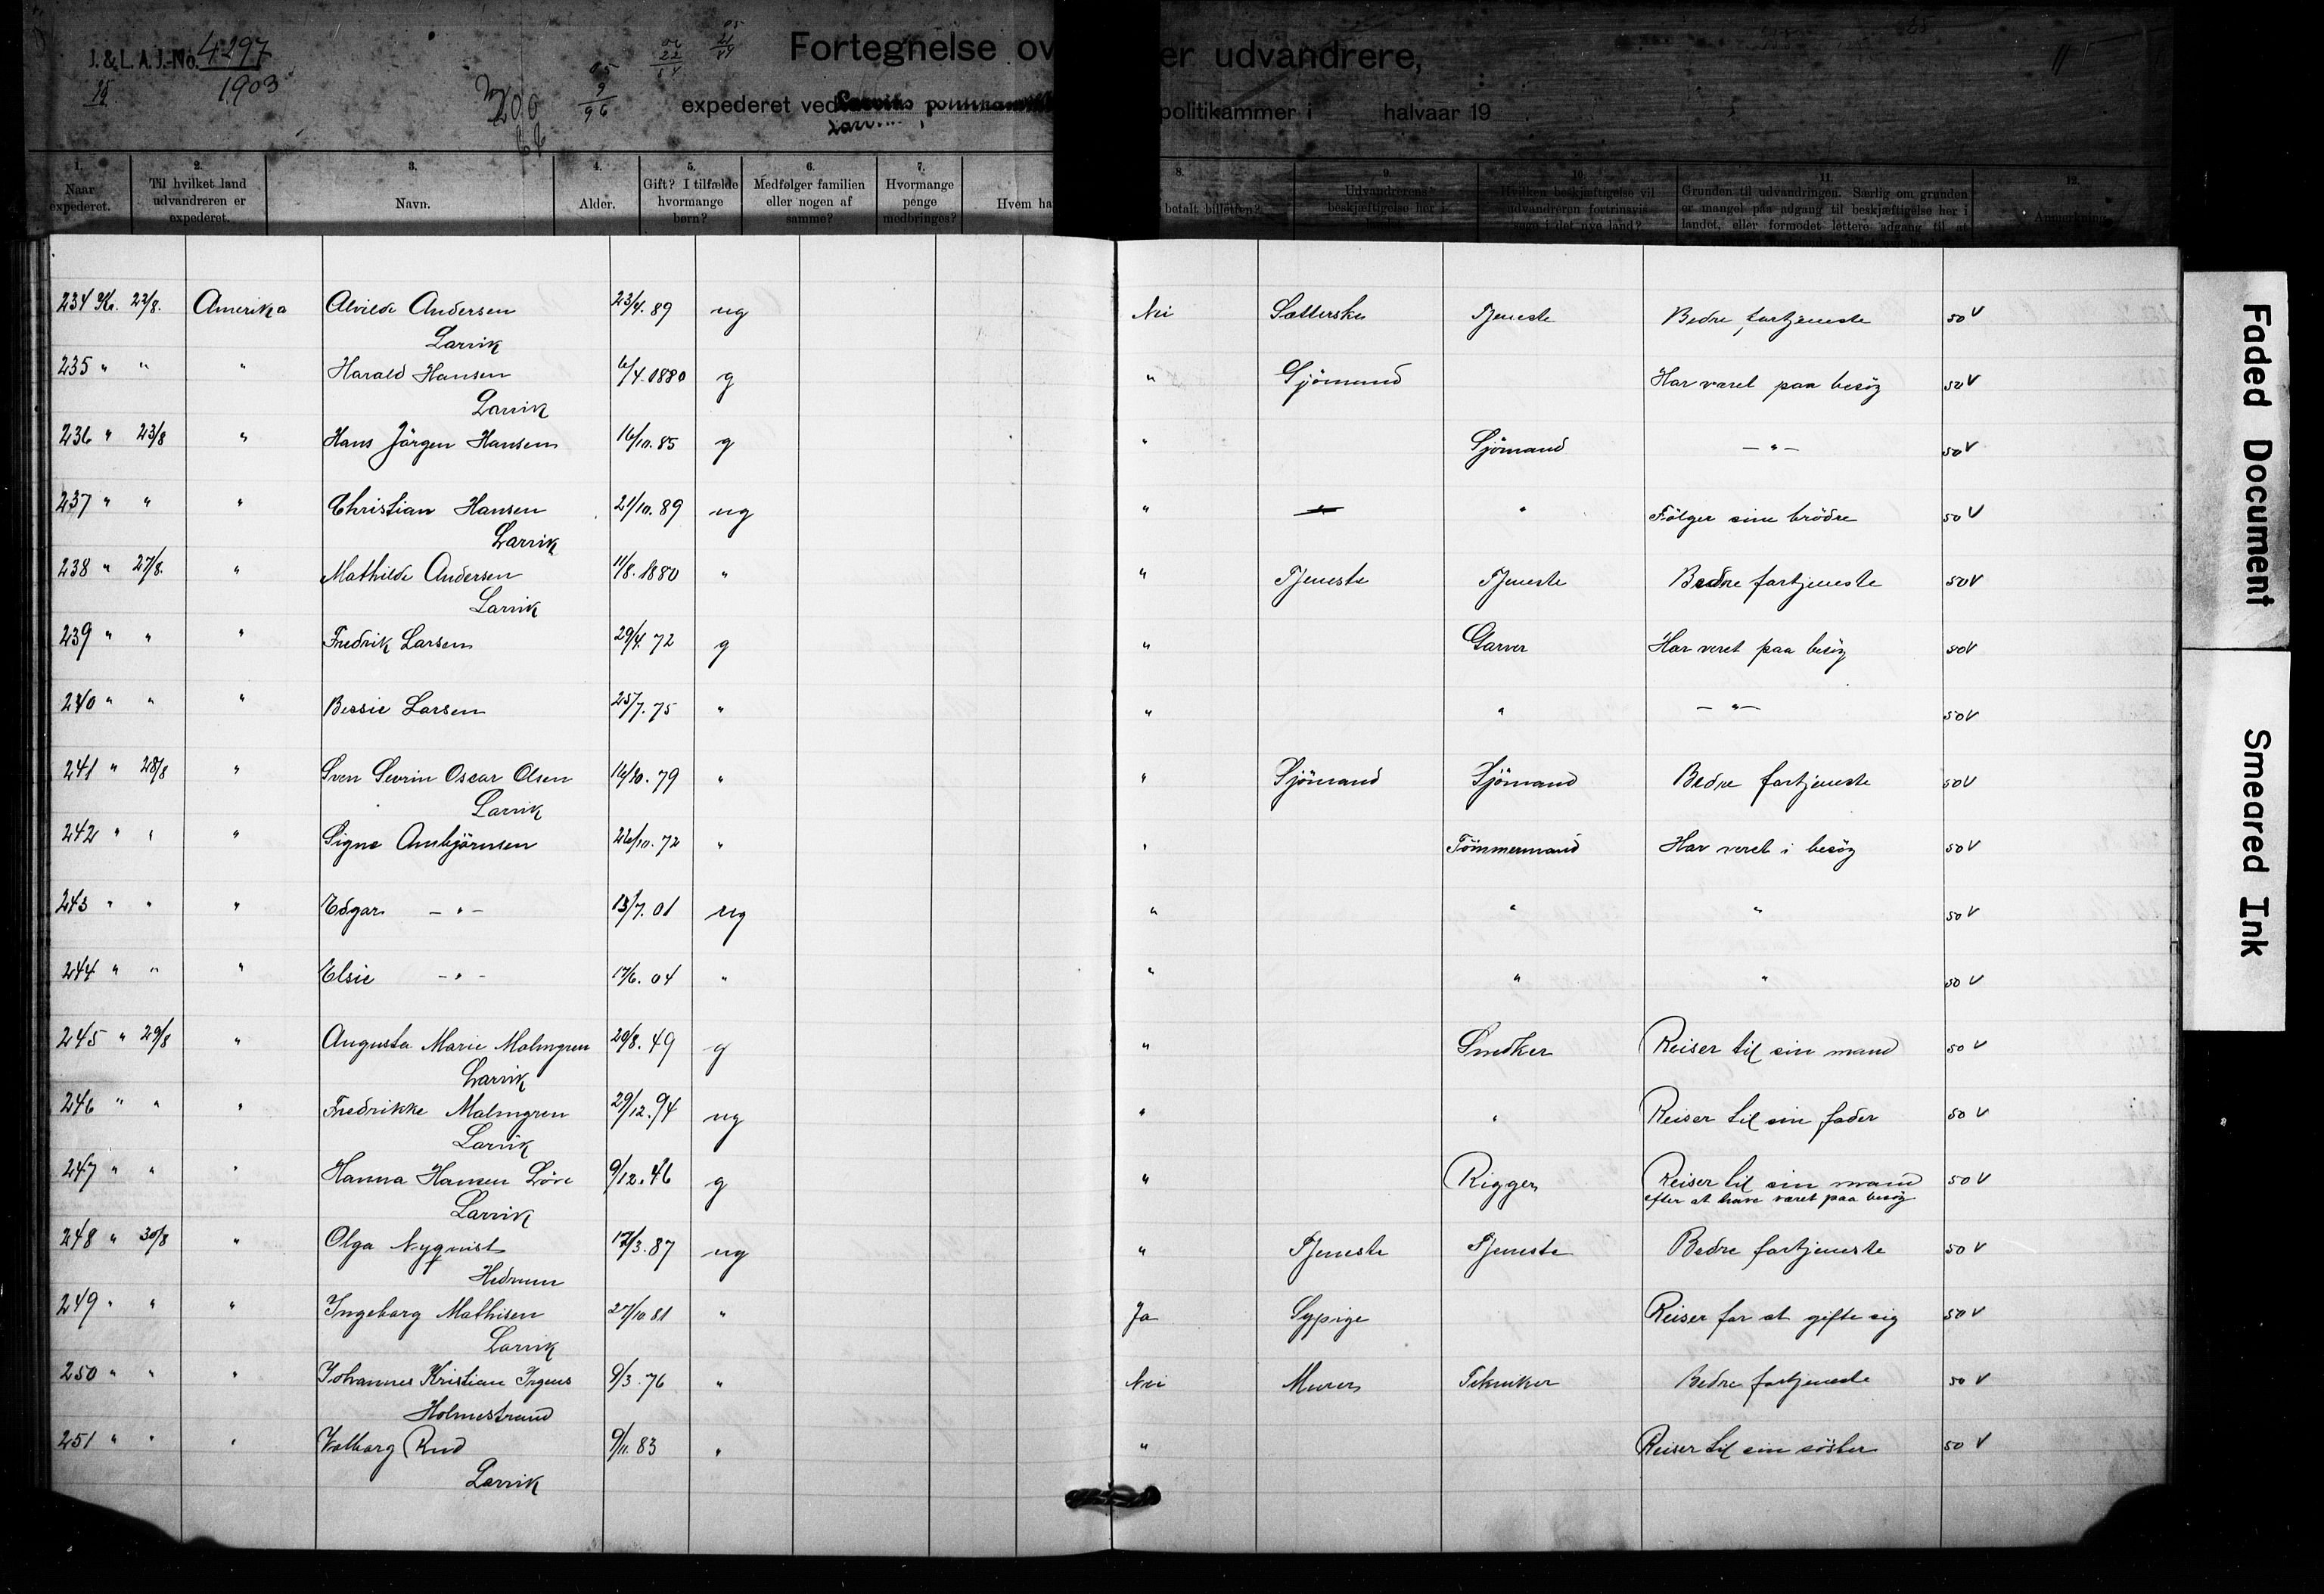 J. & L. A. J.-No. 4297
1903
Fortegnelse ov er udvandrere,
expederet ved politikammer i halvaar 19
1. Naar expederet.
2. Til hvilket land udvandreren er expederet.
3. Navn.
4. Alder.
5. Gift? I tilfælde hvormange børn?
6. Medfølger familien eller nogen af samme?
7. Hvormange penge medbringes?
8. Hvem ha betalt billetten?
9. Udvandrerens beskjæftigelse her i
10. Hvilken beskjæftigelse vil udvandreren fortrinsvis søge i det nye land?
11. Grunden til udvandringen. Særlig om grunden er mangel paa adgang til beskjæftigelse her i landet, eller formodet lettere adgang til at
12. Anmerkning.
234 Kr. 22/8. Amerika Alvilde Andersen 23/4. 89 ug Nei Sætterske Tjeneste Bedre fortjeneste 50 V
Larvik
235 " " " Harald Hansen 6/4. 1880 g " Sjömand Har været paa besög 50 V
Larvik
236 " 23/8 " Hans Jörgen Hansen 16/10. 85 g " Sjömand — " — 50 V
237 " " " Christian Hansen 21/10. 89 ug " " Fölger sine brödre 50 V
Larvik
238 " 27/8. " Mathilde Andersen 11/8. 1880 " " Tjeneste Tjeneste Bedre fortjeneste 50 V
Larvik
239 " " " Fredrik Larsen 29/4. 72 g " Garver Har veret paa besög 50 V
240 " " " Bessie Larsen 25/7. 75 " " " — " — 50 V
241 " 28/8 " Sven Sevrin Oscar Olsen 16/10. 79 " " Sjömand Sjömand Bedre fortjeneste 50 V
Larvik
242 " " " Signe Ambjörnsen 26/10. 72 " " Tömmermand Har veret i besög 50 V
243 " " " Edgar — " — 13/7. 01 ug " " " 50 V
244 " " " Elsie — " — 17/6. 04 " " " " 50 V
245 " 29/8 " Augusta Marie Malmgren 20/8. 49 g " Snedker Reiser til sin mand 50 V
Larvik
246 " " " Fredrikke Malmgren 29/12. 94 ug " " Reiser til sin fader 50 V
Larvik
247 " " " Hanna Hansen Löve 9/12. 46 g " Rigger Reiser til sin mand 50 V
Larvik efter at have været paa besög
248 " 30/8 " Olga Nyquist 17/3. 87 ug " Tjeneste Tjeneste Bedre fortjeneste 50 V
Hedrum
249 " " " Ingeborg Mathisen 27/10 81 " Ja Sypige Reiser for at gifte sig 50 V
Larvik
250 " " " Johannes Kristian Irgens 9/3. 76 " Nei Murer Tekniker Bedre fortjeneste 50 V
Holmestrand
251 " " " Valborg Rud 9/11. 83 " " Reiser til sin söster 50 V
Larvik
Faded Document
Smeared Ink